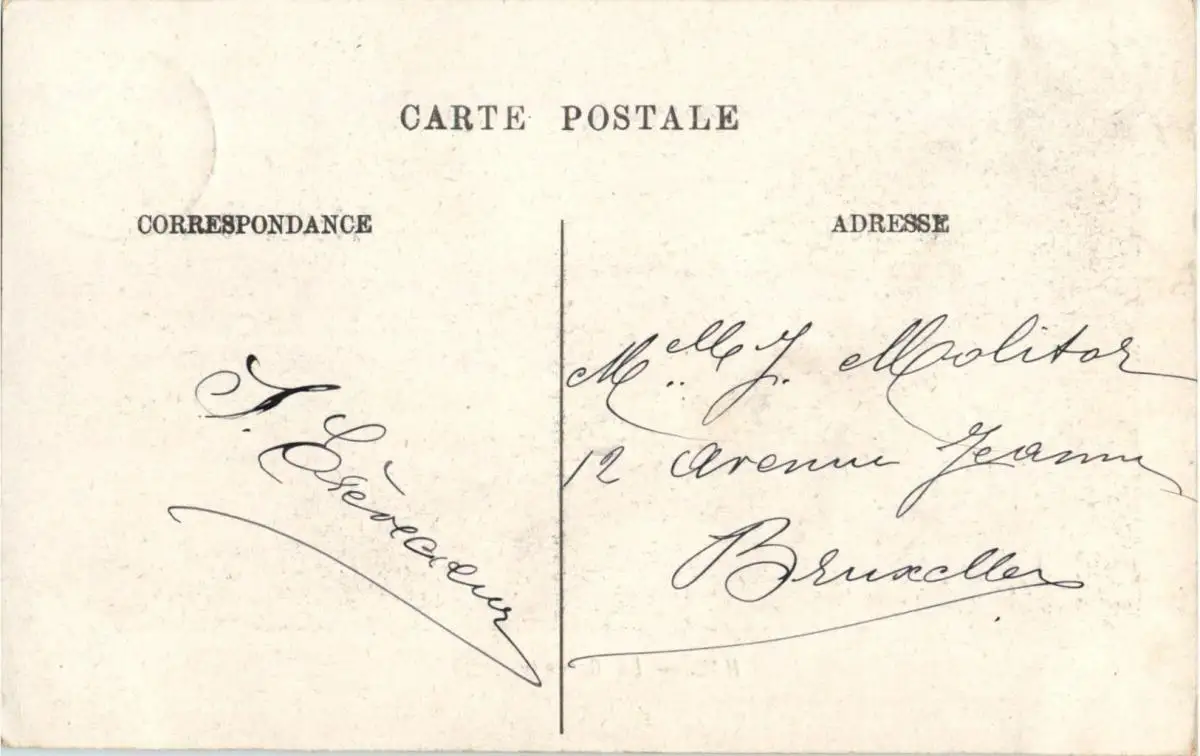 CARTE POSTALE
CORRESPONDANCE
ADRESSE
Melle J. Molitor
12 avenue Jeanne
Bruxelles